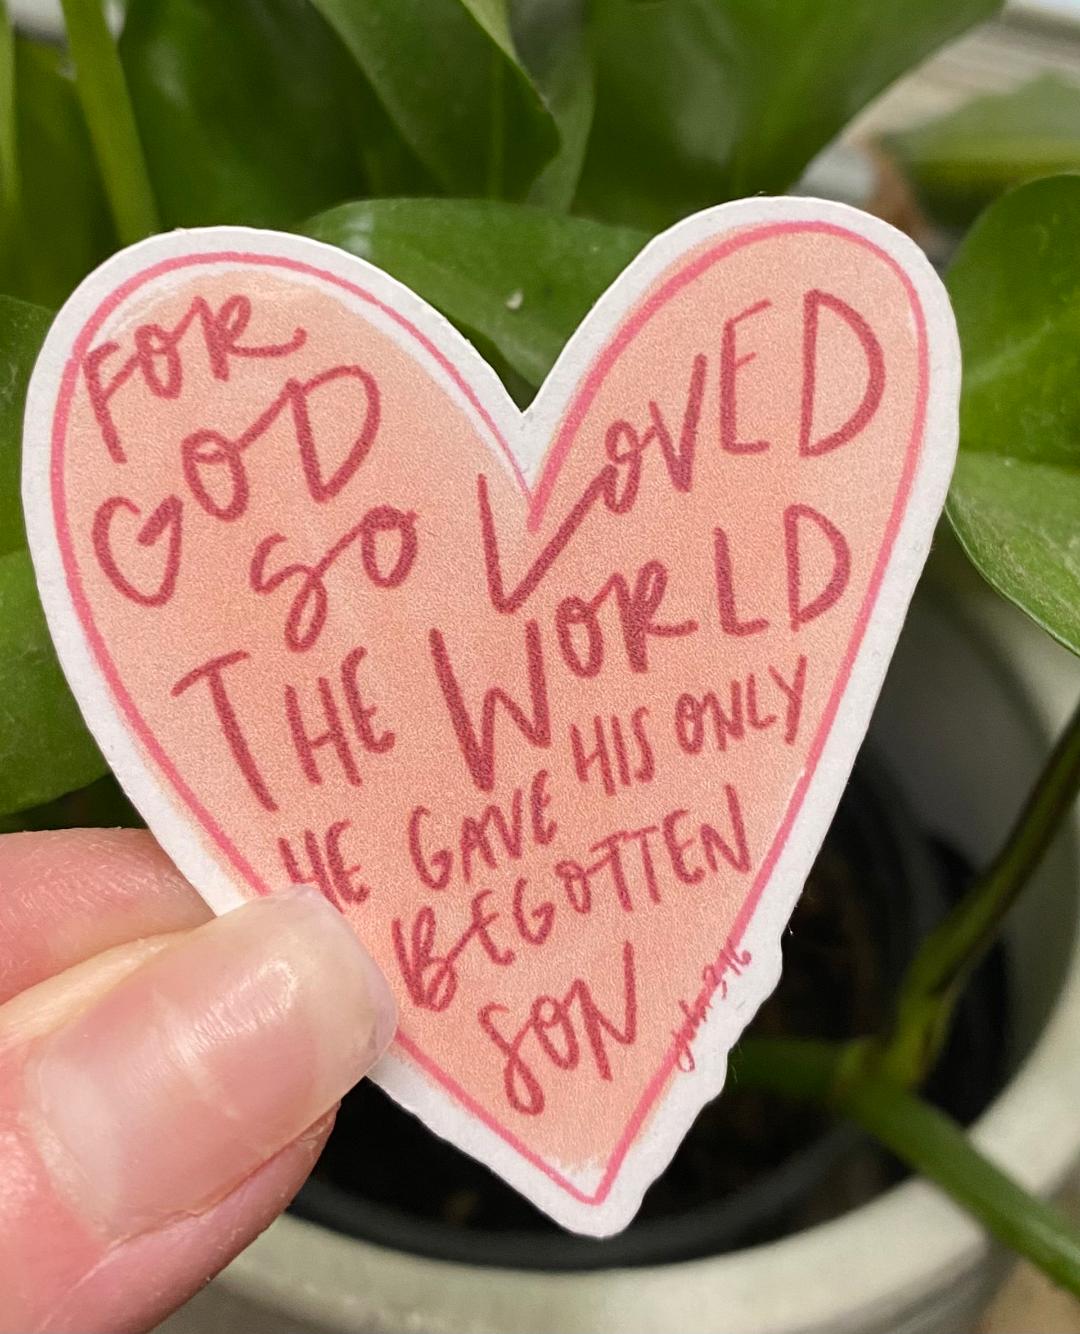 FOR
GOD
SO LOVED
THE WORLD
HE GAVE HIS ONLY
BEGOTTEN
SON
john 3:16